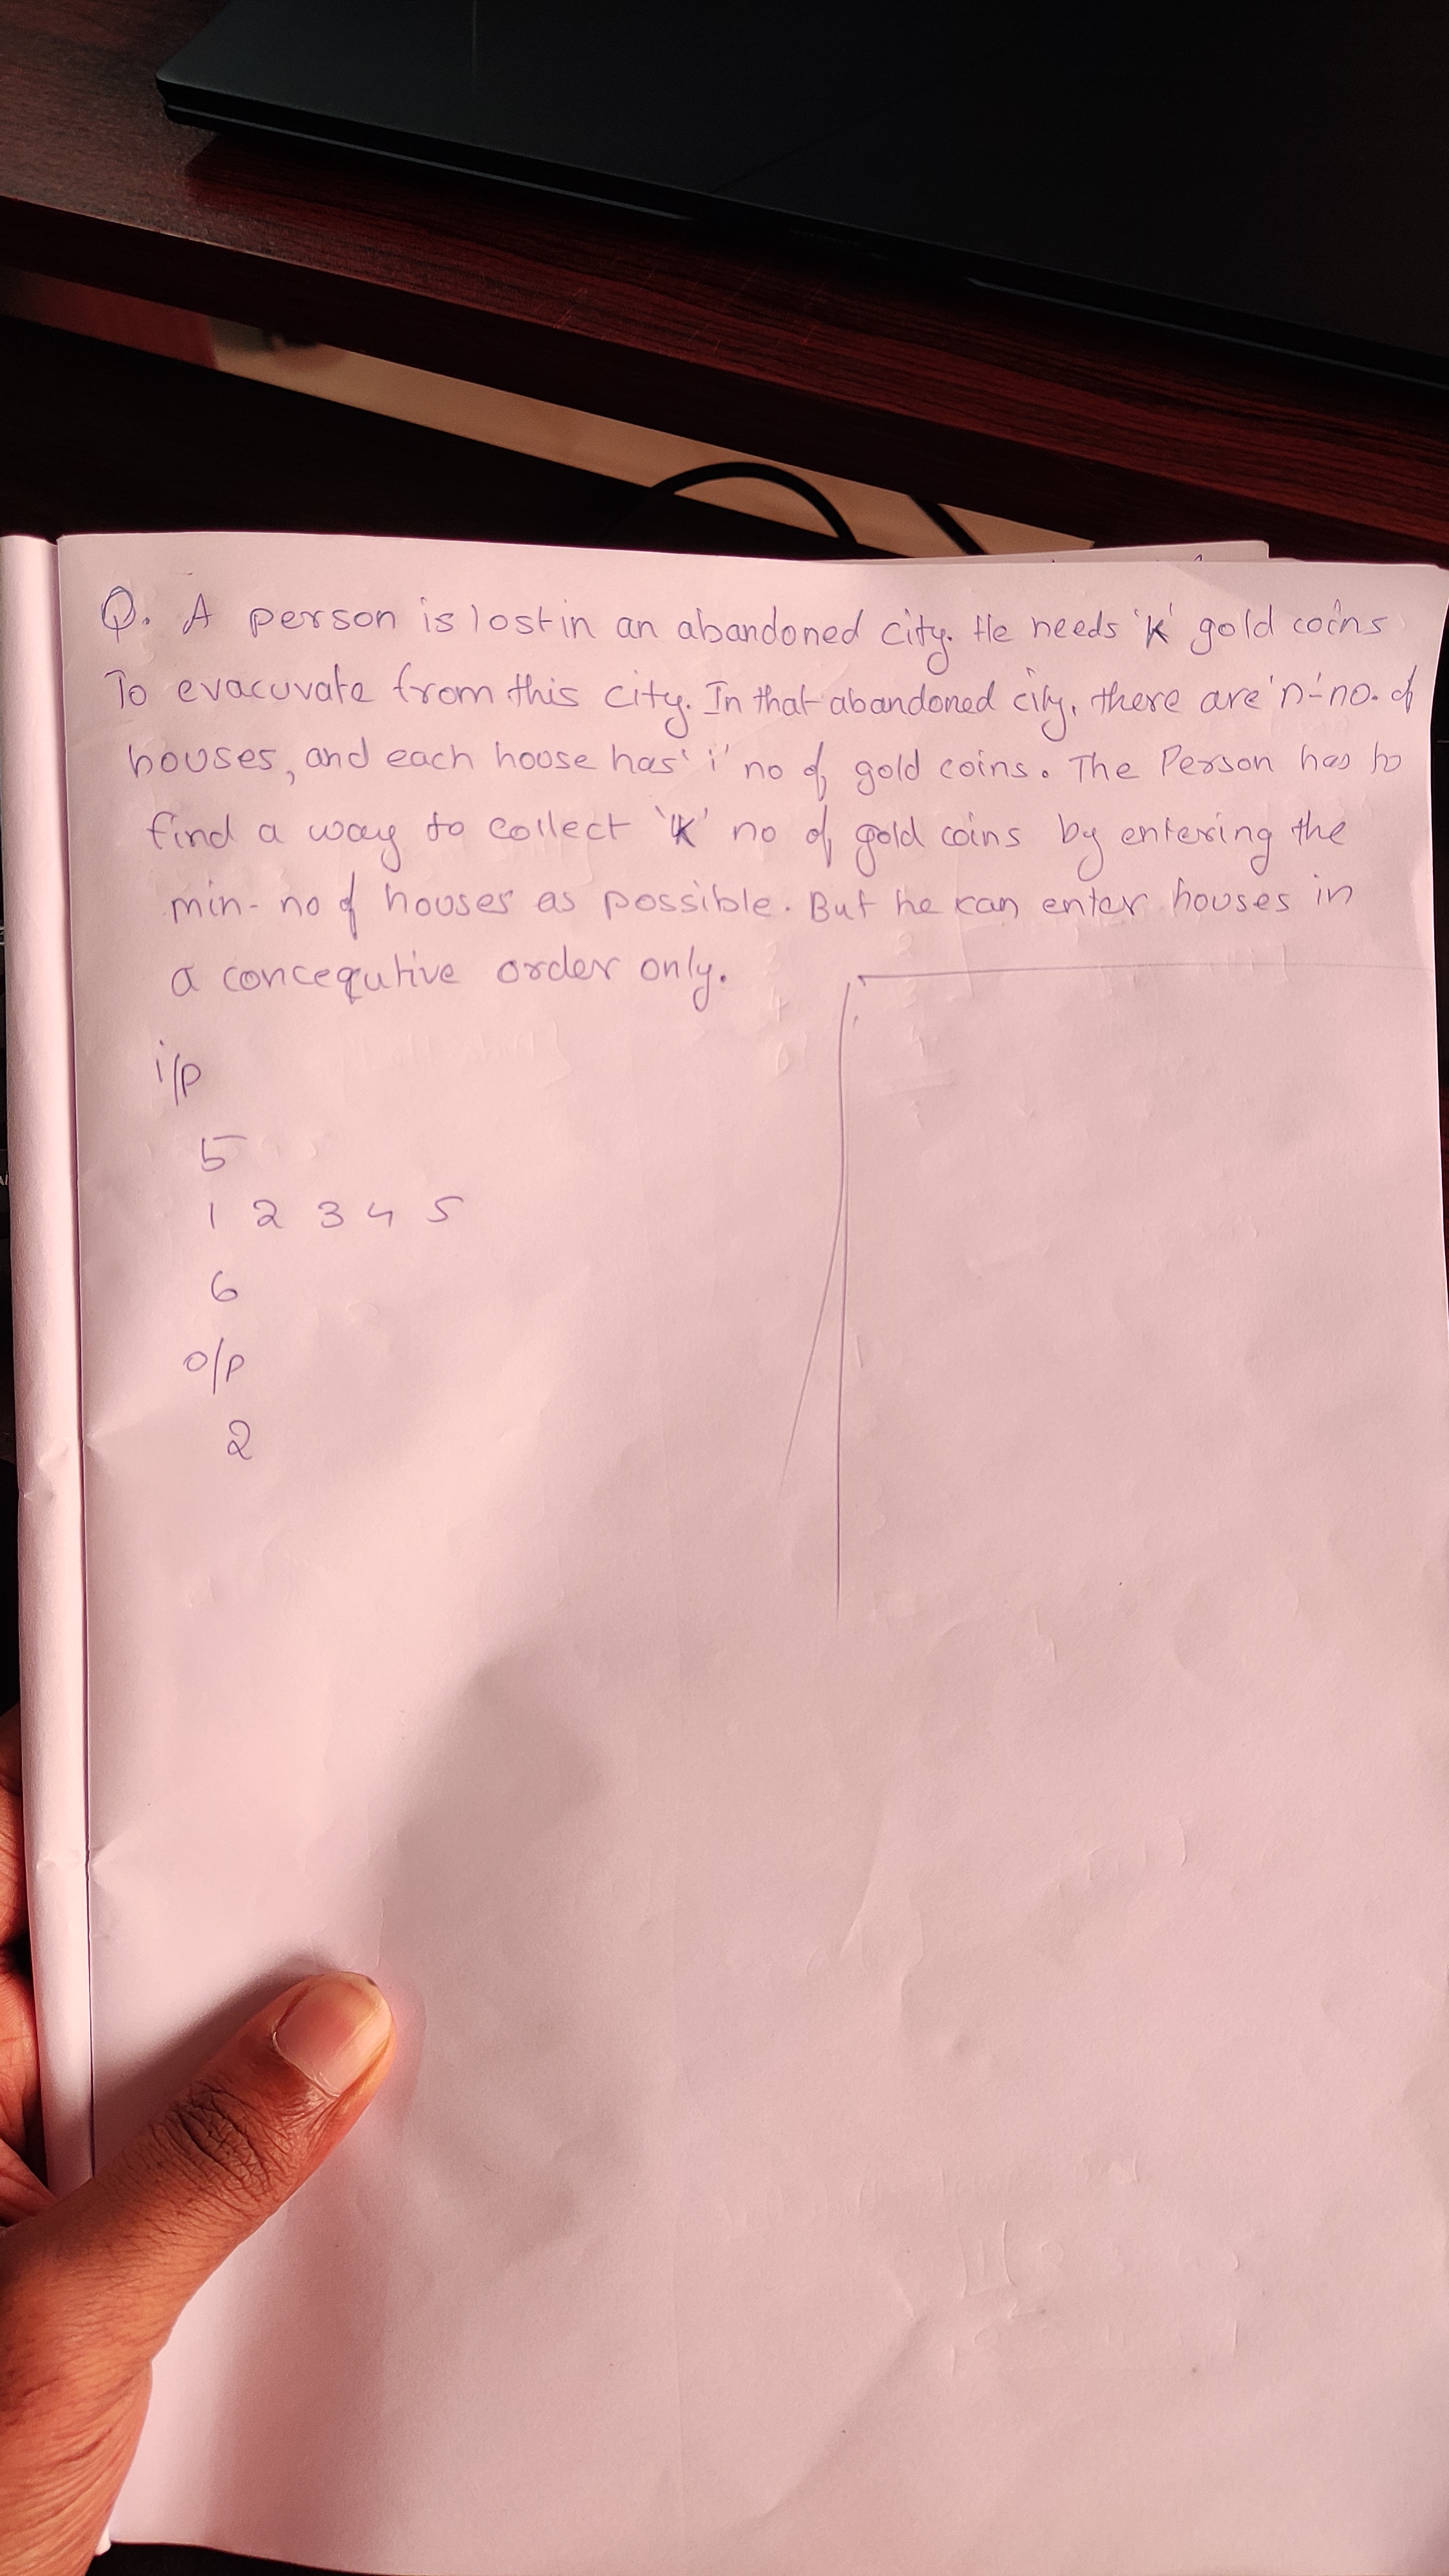 Q. A person is lost in an abandoned city. He needs 'K' gold coins
To evacuvate from this city. In that abandoned city, there are 'n'-no. of
houses, and each hoose has 'i' no of gold coins. The Person has to
find a way to collect 'K' no of gold coins by entering the
min- no of houses as possible. But he can enter houses in
a concequtive order only.
i/p
5
1 2 3 4 5
6
o/p
2